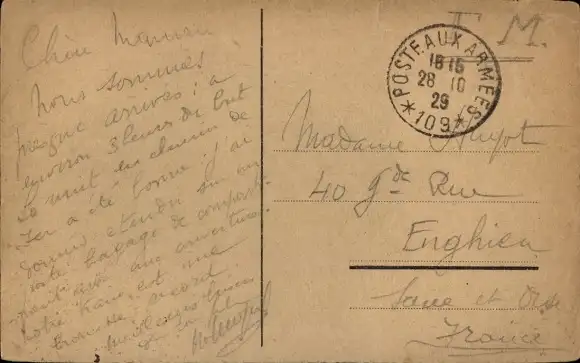 Chère Maman
Nous sommes
presque arrivés à
environ 3 heures du but
La nuit en chemin de
fer a été bonne j'ai
dormi étendu sur un
porte bagage de compart-
aux couvertures
notre train est une
F. M.
POSTE AUX ARMEES
18 15
28 10
29
* 109 *
Madame
40 Gde Rue
Enghien
Seine et Oise
France